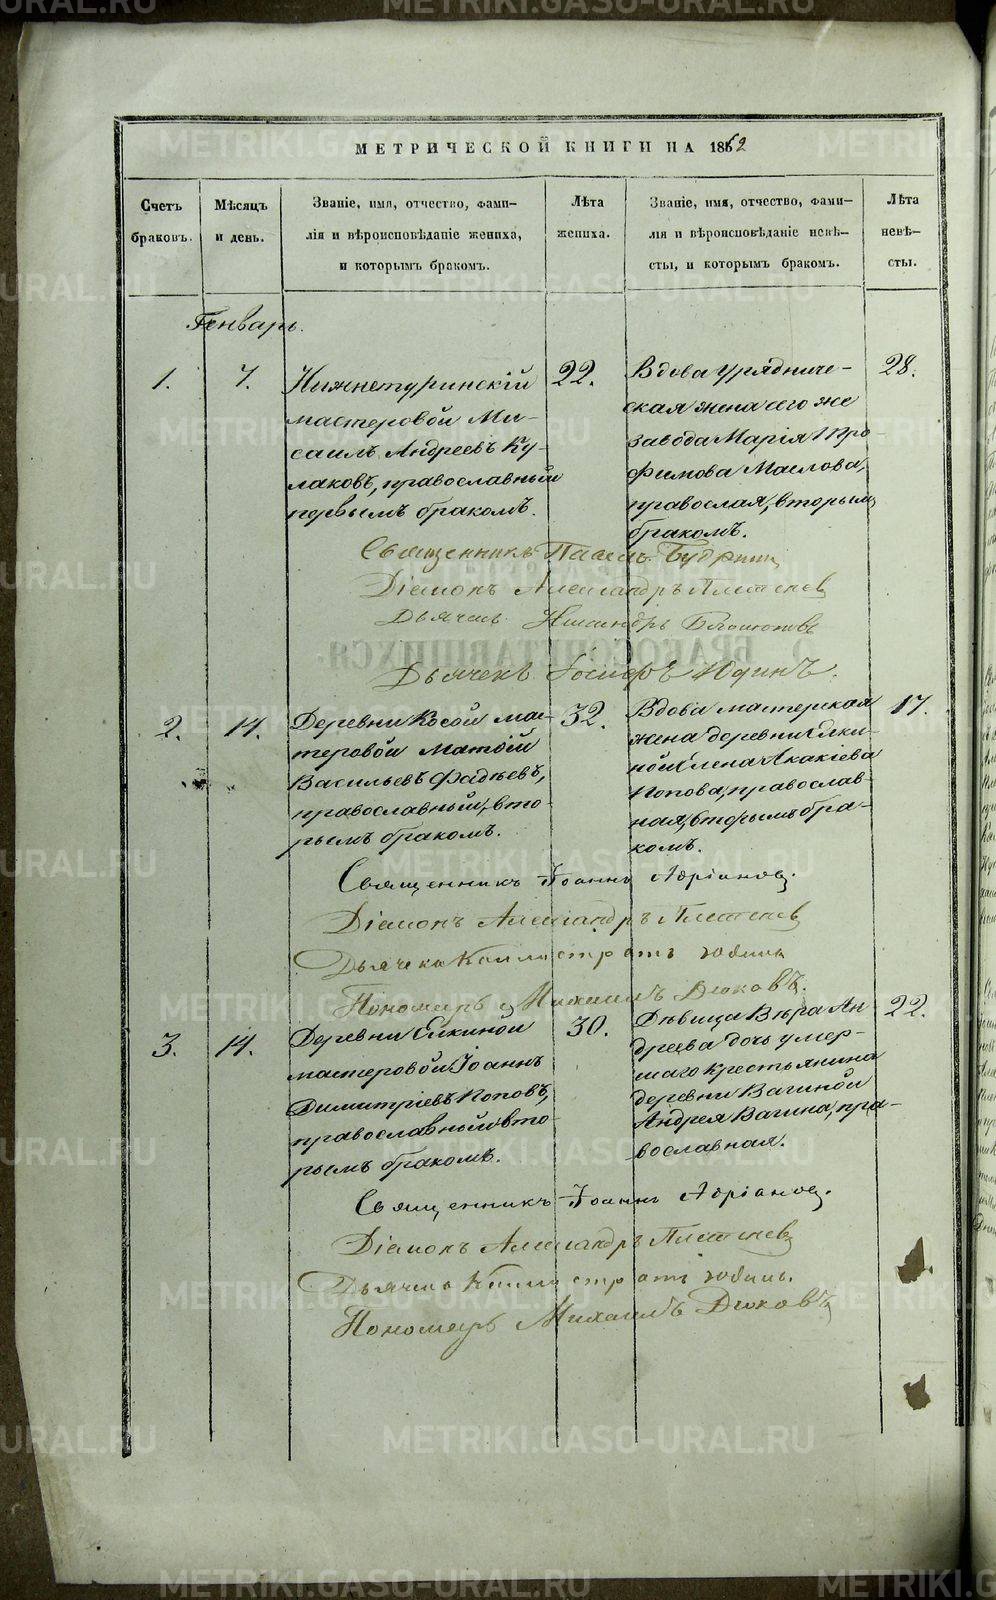 МЕТРИЧЕСКОЙ КНИГИ НА 1862
Счетъ браковъ.
Мѣсяцъ и день.
Званіе, имя, отчество, фами-
лія и вѣроисповѣданіе жениха,
и которымъ бракомъ.
Лѣта
жениха.
Званіе, имя, отчество, фами-
лія и вѣроисповѣданіе невѣ-
сты, и которымъ бракомъ.
Лѣта
невѣ-
сты.
Генварь.
1.
7.
Нижнетуринскій
мастеровой Ми-
саилъ Андреевъ Ку-
лаковъ, православный
первымъ бракомъ.
22.
Вдова уряdниче-
ская жена сего же
завода Марія Тро
фимова Маслова,
православая, вторымъ
бракомъ.
28.
Священникъ Павелъ
Діаконъ Александръ Плетеневъ
Дьячекъ
Дьячекъ Іосифъ Юдинъ.
2.
14.
Деревни Косой мас-
теровой Матѳій
Васильевъ Фадѣевъ,
православный, вто-
рымъ бракомъ.
32.
Вдова мастерская
жена деревни Елки-
ной Елена Акакіева
Попова, православ-
ная, вторымъ бра-
комъ.
17.
Священникъ Іоаннъ Адріановъ.
Діаконъ Александръ Плетеневъ
Дьячекъ Каллистратъ Юдинъ
Пономарь Михаилъ Дюковъ.
3.
14.
Деревни Елкиной
мастеровой Іоаннъ
Димитріевъ Поповъ,
православный вто
рымъ бракомъ.
30.
Дѣвица Вѣра Ан
дреева дочь умер-
шаго крестьянина
деревни Вагиной
Андрея Вагина, пра-
вославная.
22.
Священникъ Іоаннъ Адріановъ.
Діаконъ Александръ Плетеневъ
Дьячекъ Каллистратъ Юдинъ.
Пономарь Михаилъ Дюковъ
METRIKI.GASO-URAL.RU